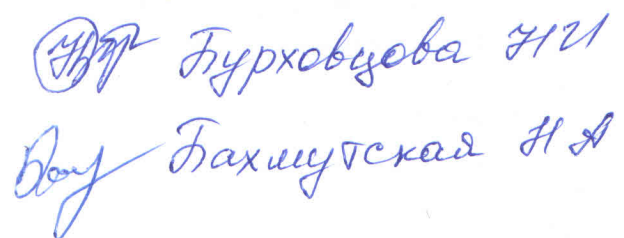 Бурховцова НИ
Бахмутская Н А